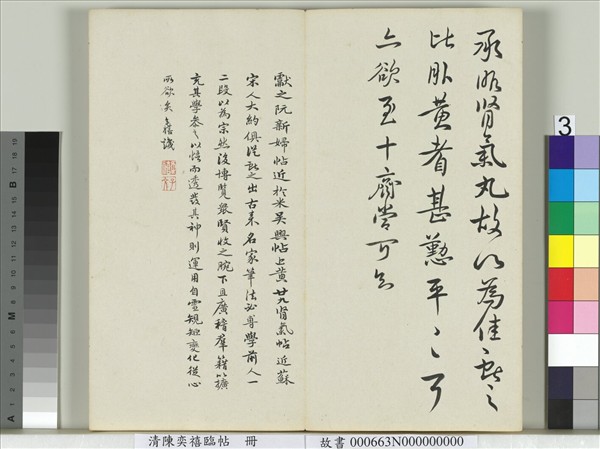 承服腎氣丸故以為佳獻之
比服黃耆甚懃平〻耳
亦欲至十齊當可知
獻之阮新婦帖近於米吴興帖上黄廿九腎氣帖近蘇
宋人大約俱從獻之出古来名家筆法必專學前人一
二段以為宗然後博覽衆賢收之腕下且廣稽羣籍以擴
充其學參之以悟而透發其神則運用自靈規矩變化從心
所欲矣 奕禧識
清陳奕禧臨帖 冊
故書 000663N000000000
3
A
M
B